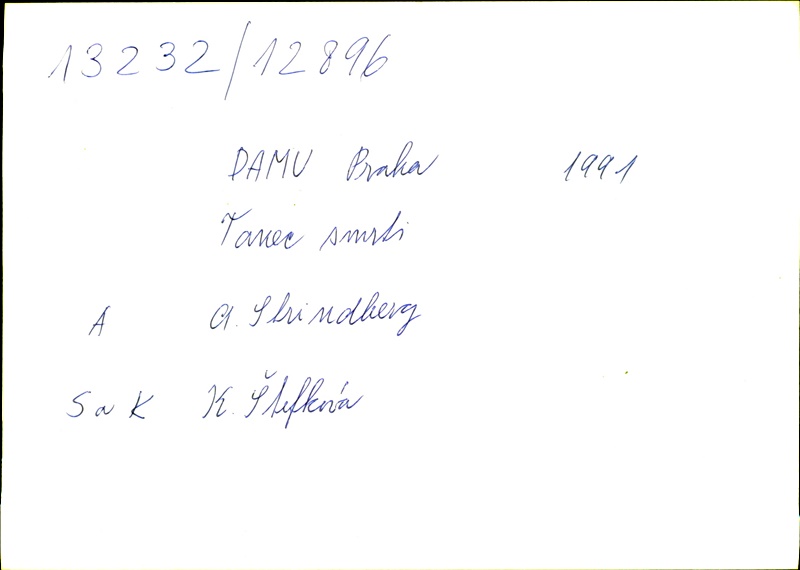 13232/12896
DAMU Praha 1991
Tanec smrti
A A. Strindberg
S a K K. Štefková